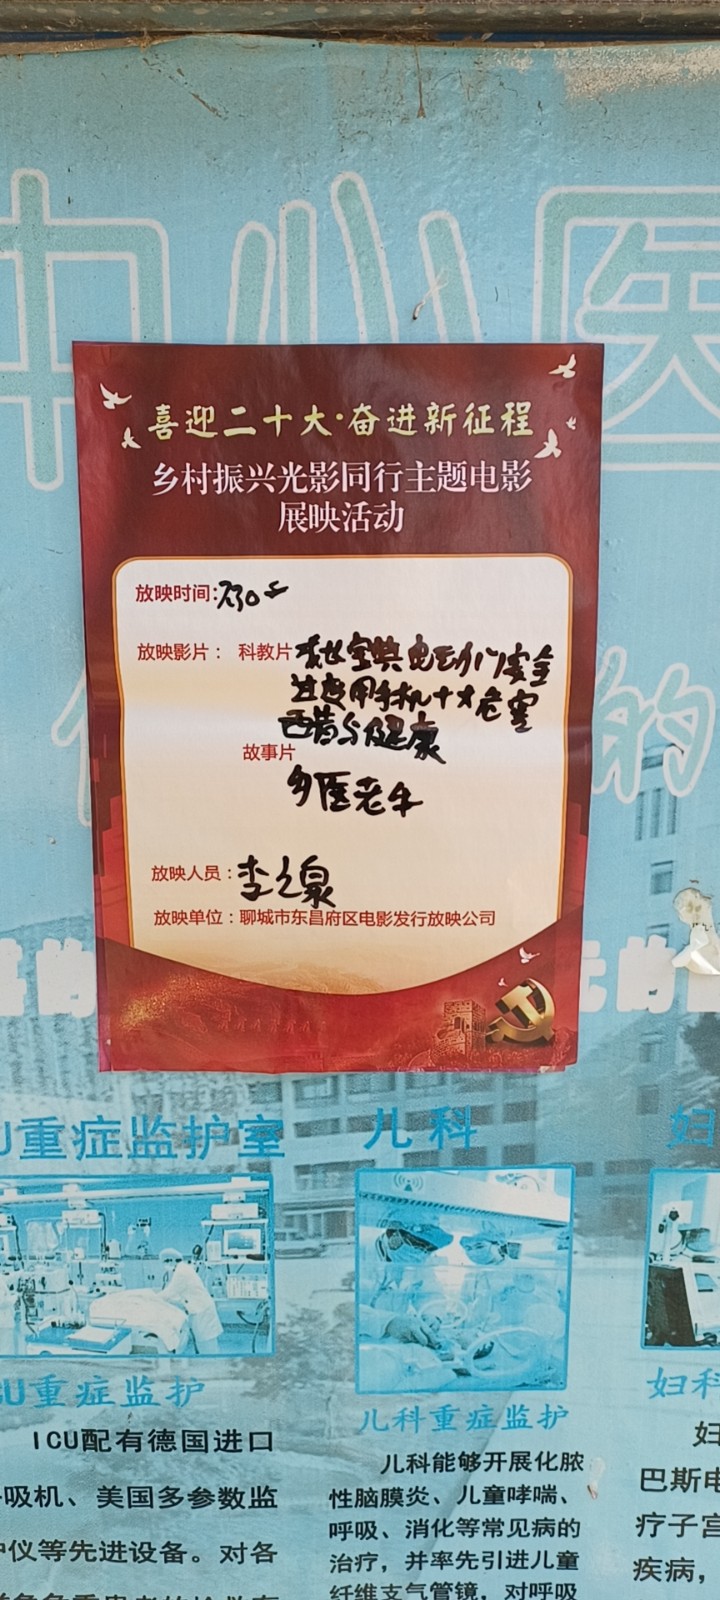 中心医
的
喜迎二十大·奋进新征程
乡村振兴光影同行主题电影
展映活动
放映时间:730
放映影片： 科教片 宝典 电动门安全
过度用手机十大危害
醋与健康
故事片
乡医老牛
放映人员：李之泉
放映单位：聊城市东昌府区电影发行放映公司
的
的
U重症监护室
儿科
妇
CU重症监护
儿科重症监护
妇科
ICU配有德国进口
吸机、美国多参数监
护仪等先进设备。对各
儿科能够开展化脓
性脑膜炎、儿童哮喘、
呼吸、消化等常见病的
治疗，并率先引进儿童
纤维支气管镜，对呼吸
妇
巴斯电
疗子宫
疾病，